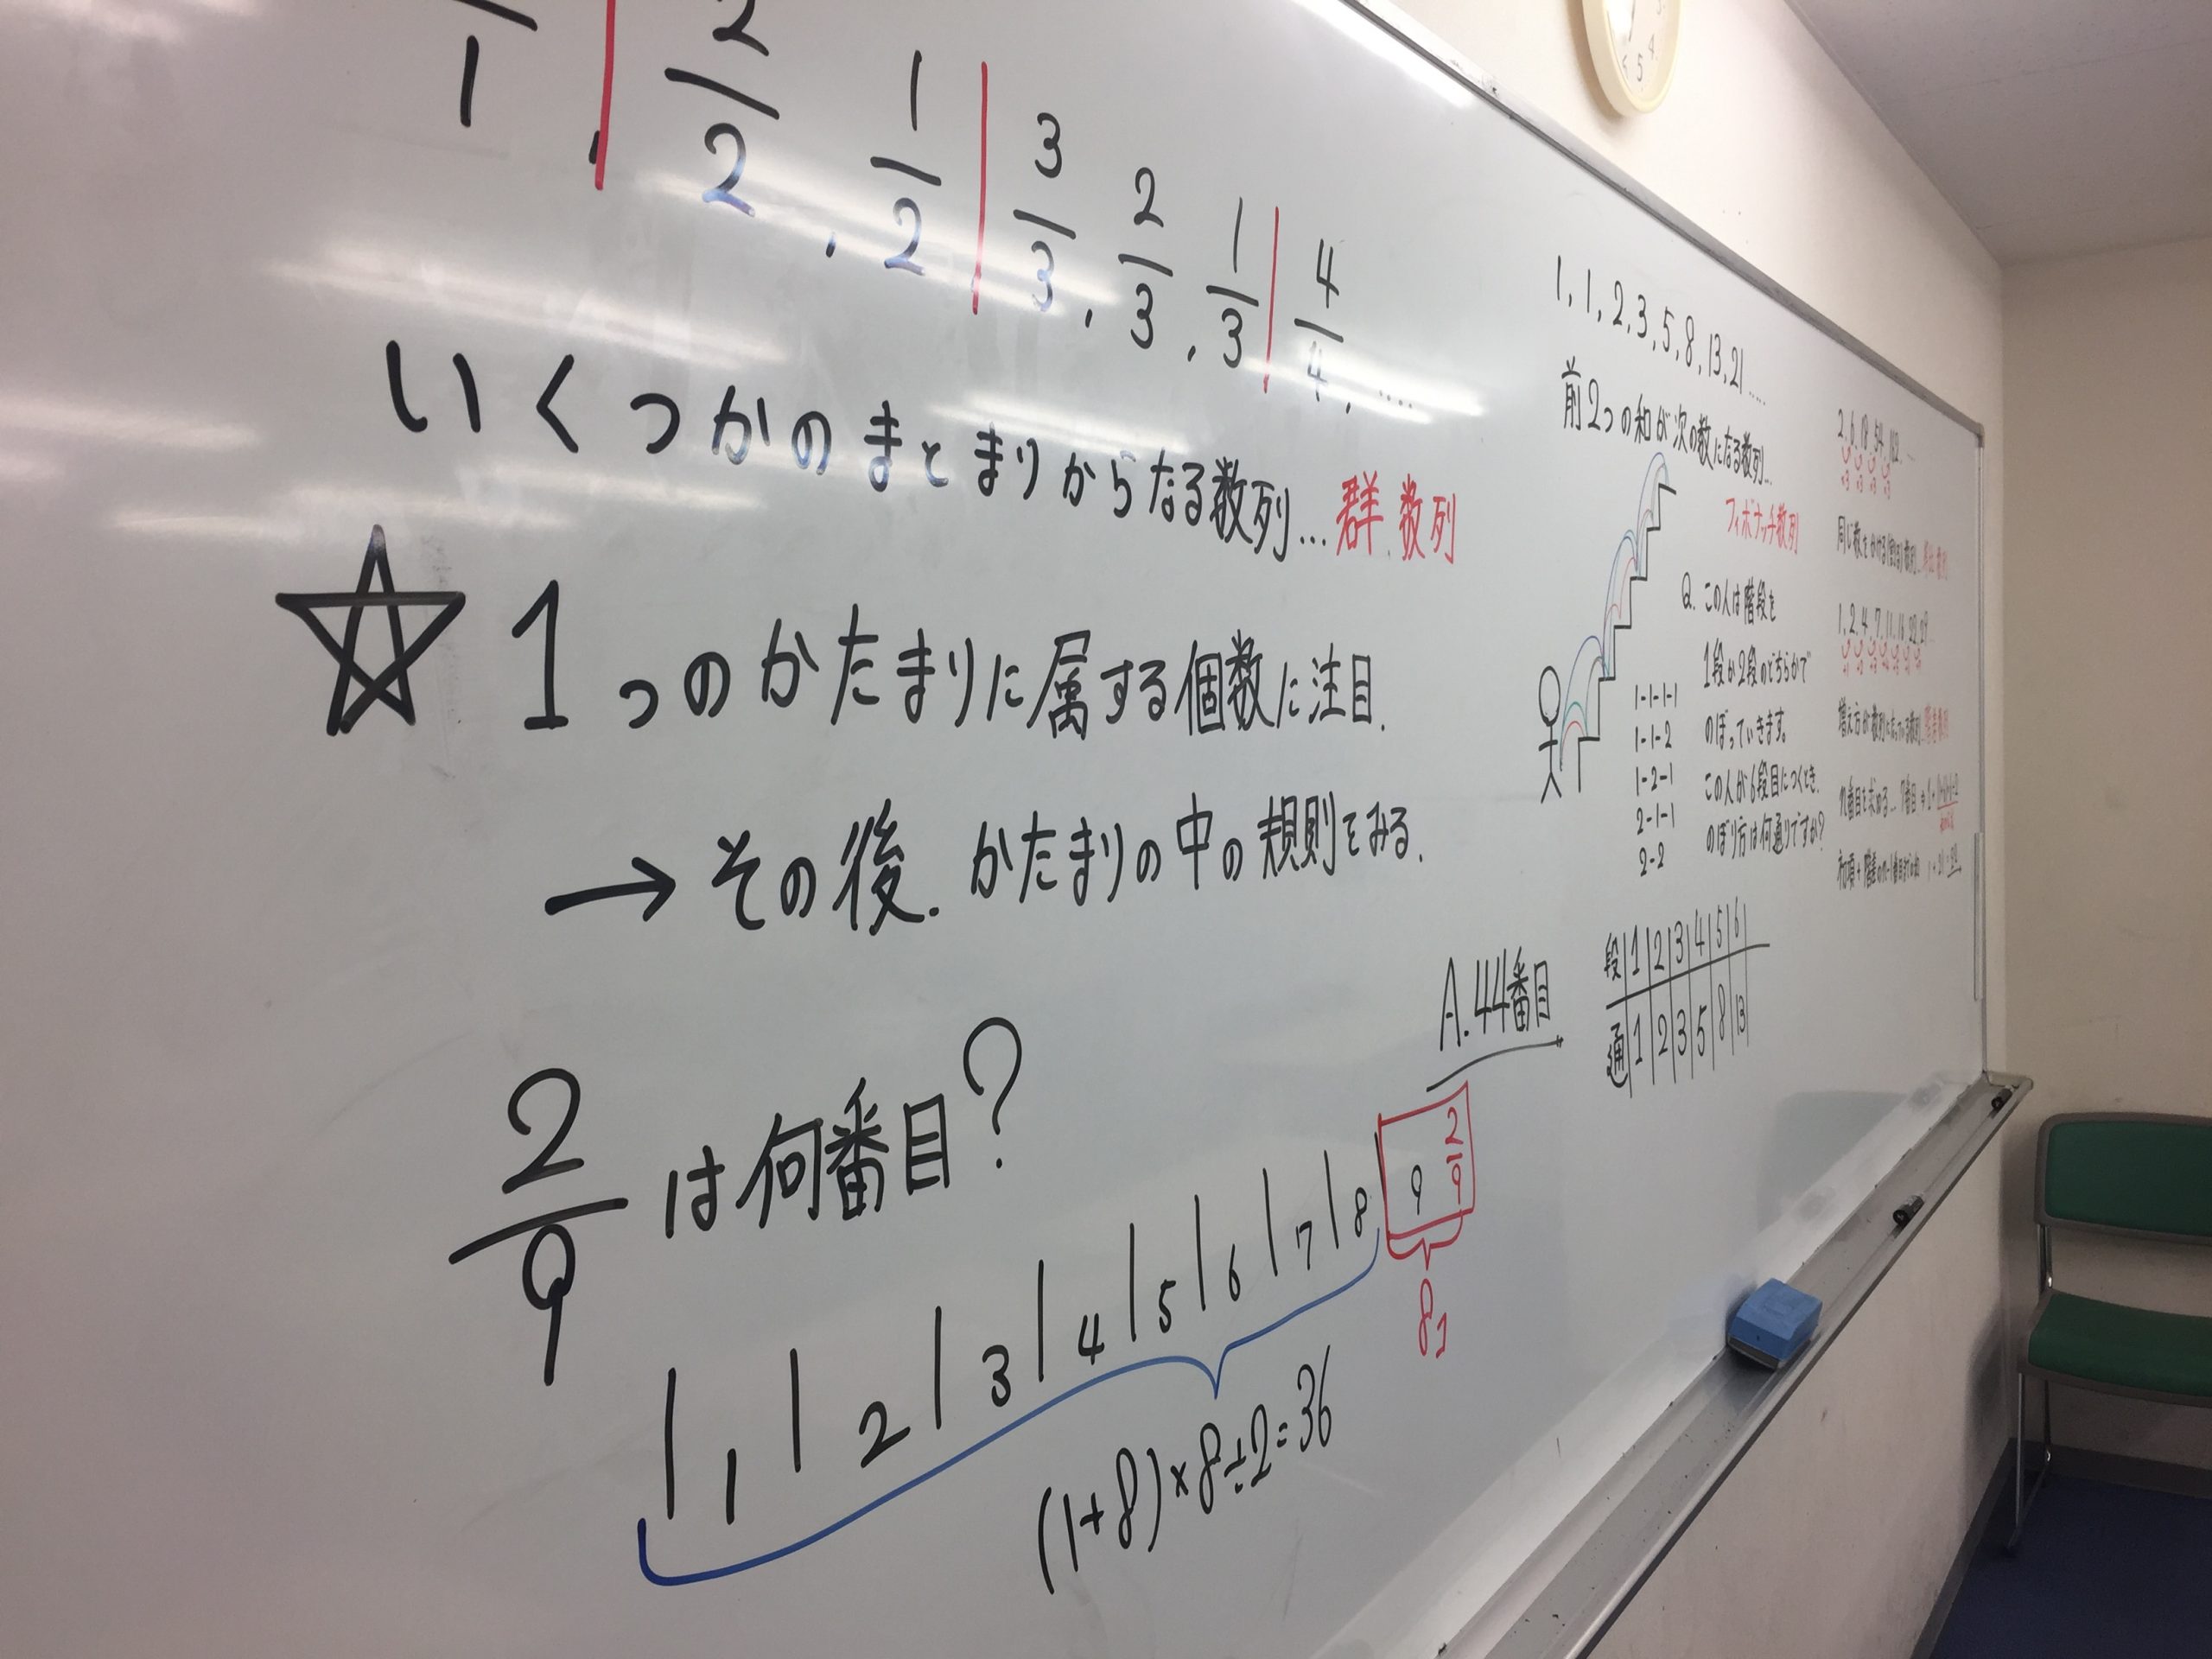 1/1, 2/2, 1/2, 3/3, 2/3, 1/3, 4/4, ....
いくつかのまとまりからなる数列...群数列
☆ 1つのかたまりに属する個数に注目.
→その後.かたまりの中の規則をみる.
2/9は何番目?
1 2 3 4 5 6 7 8 9 2/9
(1+8)×8÷2=36
8コ
A.44番目
1,1,2,3,5,8,13,21.....
前2つの和が次の数になる数列...
フィボナッチ数列
Q.この人は階段を
1段か2段のどちらかで
のぼっていきます。
この人が6段目につくとき、
のぼり方は何通りですか?
1-1-1-1
1-1-2
1-2-1
2-1-1
2-2
段 1 2 3 4 5 6
通 1 2 3 5 8 13
2,6,18,54,162,...
×3 ×3 ×3 ×3
1,2,4,7,11,16,22,29
増え方が数列になっている数列...階差数列